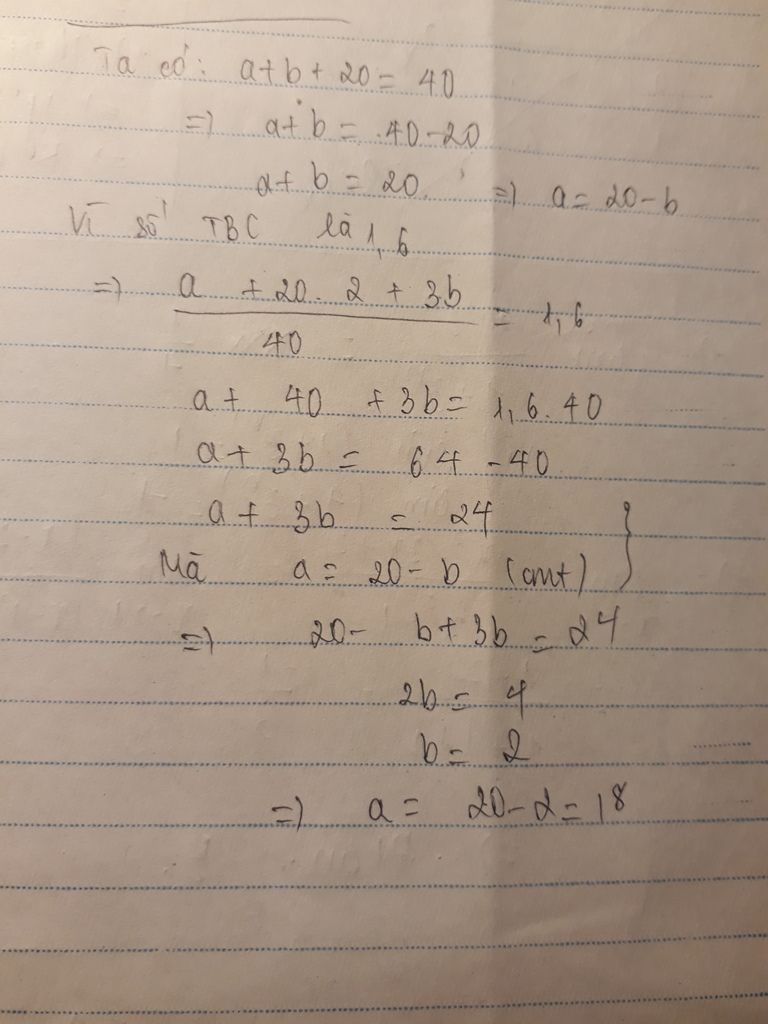 Ta có: a+b+20=40
=> a+b=40-20
a+b=20 => a=20-b
Vì số TBC là 1,6
=> a +20.2+3b = 1,6
40
a+ 40 +3b= 1,6.40
a+ 3b = 64-40
a+ 3b = 24
Mà a= 20-b (cmt) }
=> 20- b+3b=24
2b= 4
b= 2
=> a= 20-2=18